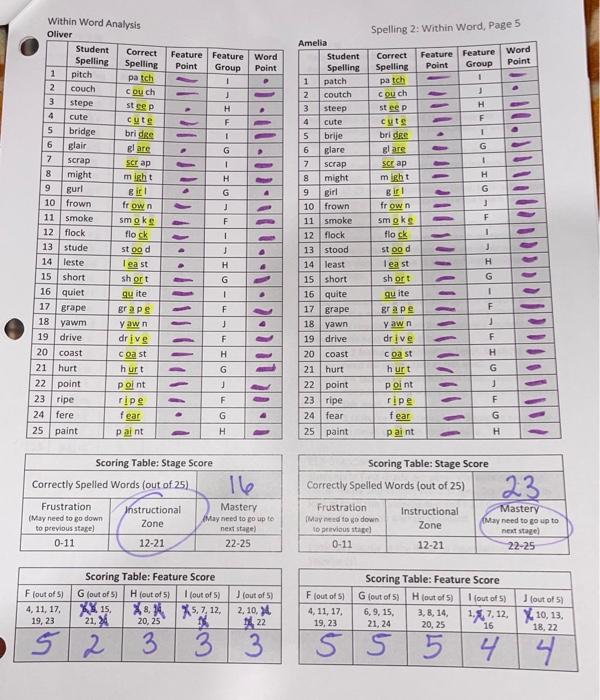 Within Word Analysis
Oliver
Student Spelling Correct Spelling Feature Point Feature Group Word Point
1 pitch pa tch I
2 couch c ou ch J
3 stepe st ee p H
4 cute c u t e F
5 bridge bri dge I
6 glair gl are G
7 scrap scr ap I
8 might m igh t H
9 gurl g ir l G
10 frown fr ow n J
11 smoke sm o k e F
12 flock flo ck I
13 stude st oo d J
14 leste l ea st H
15 short sh or t G
16 quiet qu ite I
17 grape gr a p e F
18 yawm y aw n J
19 drive dr i v e F
20 coast c oa st H
21 hurt h ur t G
22 point p oi nt J
23 ripe r i p e F
24 fere f ear G
25 paint p ai nt H
Scoring Table: Stage Score
Correctly Spelled Words (out of 25) 16
Frustration (May need to go down to previous stage) Instructional Zone Mastery (May need to go up to next stage)
0-11 12-21 22-25
Scoring Table: Feature Score
F (out of 5) G (out of 5) H (out of 5) I (out of 5) J (out of 5)
4, 11, 17, 15, 8, 5, 7, 12, 2, 10,
19, 23 21, 20, 25 22
5 2 3 3 3
Spelling 2: Within Word, Page 5
Amelia
Student Spelling Correct Spelling Feature Point Feature Group Word Point
1 patch pa tch I
2 coutch c ou ch J
3 steep st ee p H
4 cute c u t e F
5 brije bri dge I
6 glare gl are G
7 scrap scr ap I
8 might m igh t H
9 girl g ir l G
10 frown fr ow n J
11 smoke sm o k e F
12 flock flo ck I
13 stood st oo d J
14 least l ea st H
15 short sh or t G
16 quite qu ite I
17 grape gr a p e F
18 yawn y aw n J
19 drive dr i v e F
20 coast c oa st H
21 hurt h ur t G
22 point p oi nt J
23 ripe r i p e F
24 fear f ear G
25 paint p ai nt H
Scoring Table: Stage Score
Correctly Spelled Words (out of 25) 23
Frustration (May need to go down to previous stage) Instructional Zone Mastery (May need to go up to next stage)
0-11 12-21 22-25
Scoring Table: Feature Score
F (out of 5) G (out of 5) H (out of 5) I (out of 5) J (out of 5)
4, 11, 17, 6, 9, 15, 3, 8, 14, 1, 7, 12, 10, 13,
19, 23 21, 24 20, 25 16 18, 22
5 5 5 4 4